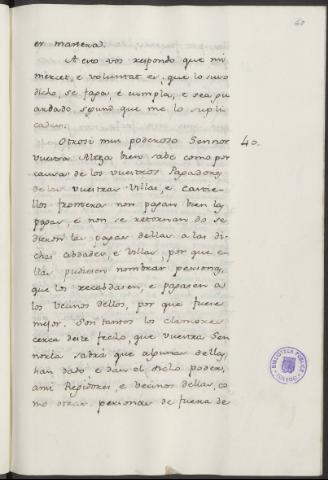 60
er manera.
A evo vos respondo que mi
mercet, e voluntat es, que lo suso
dicho, se faga, e cumpla, e sea gu
ardado segund que me lo supli
cades.
Otrosi mui poderoso Sennor 40.
vuestra Alteza bien sabe como por
causa de los vuestros Pagadores
de las vuestras Villas, e Castie-
llos fronteras non pagan bien las
pagas, e non se retornan do se
dieron las pagas dellas a las di-
chas abdades, e Villas, por que en
llas pudiesen nombrar personas,
que los recabdasen, e pagasen a
los vecinos dellos, por que fuese
mejor. Son tantos los clamores
cerca deste fecho, que vuestra Sen
noria sabrá que algunas dellas,
han dado e dan el dicho poder,
a mi Regidores, e vecinos dellas, co
mo otras personas de fuera de
BIBLIOTECA PUBLICA
TOLEDO